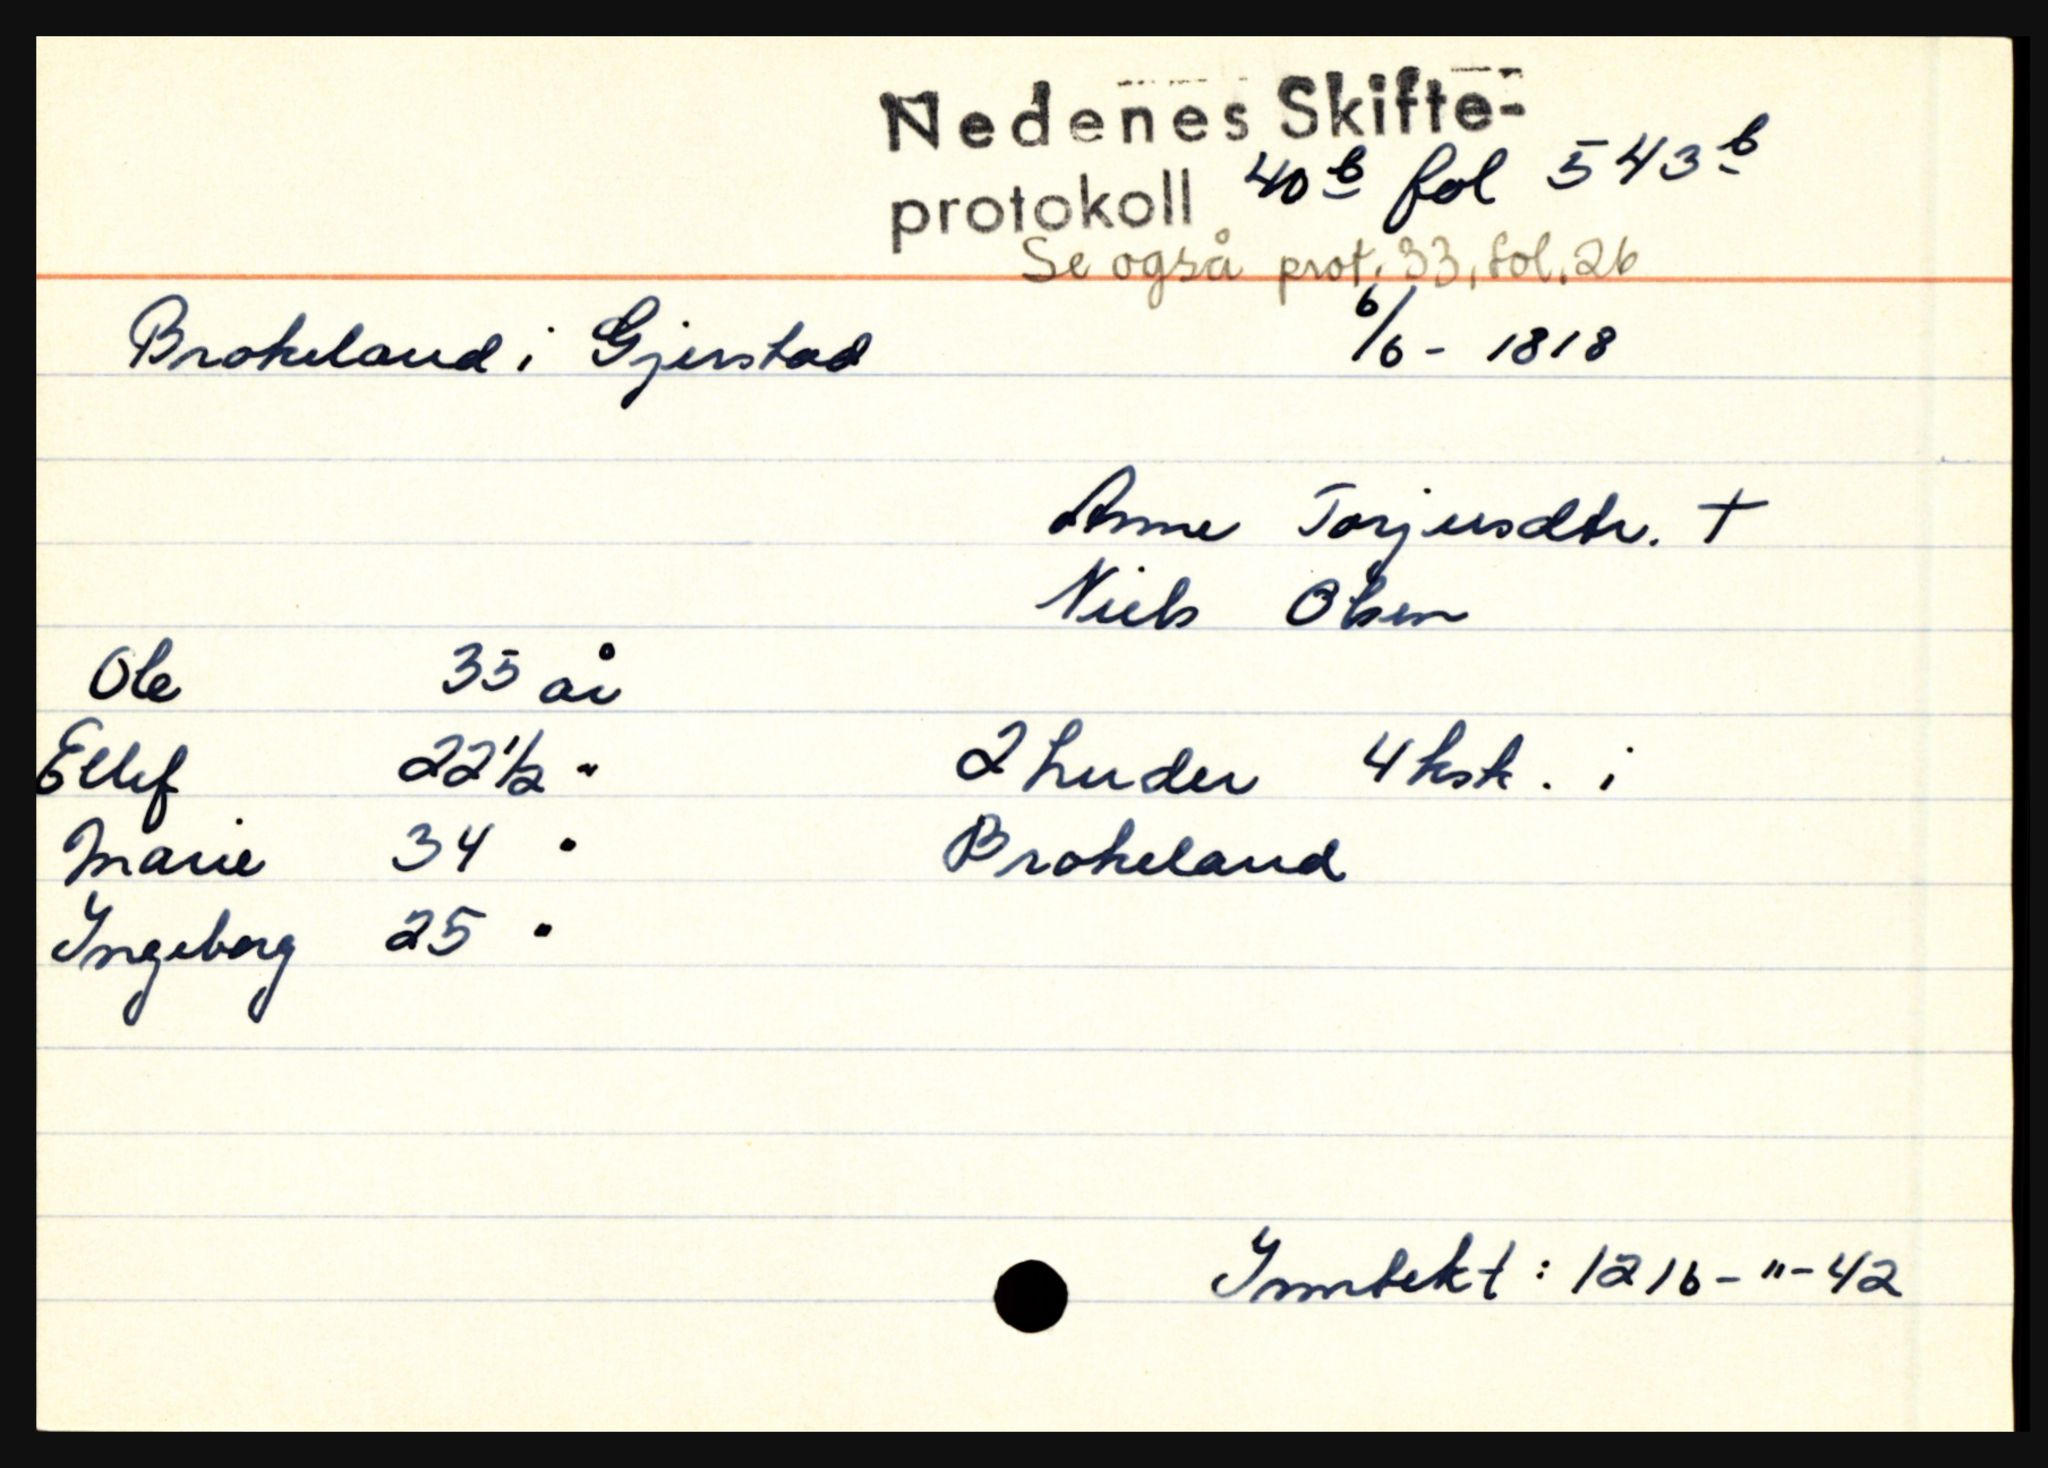 Nedenes Skifte-
protokoll 40b fol 543b
Se også prot. 33, fol. 26
Brokeland i Gjerstad 6/6 - 1818
Anne Torjusdtr. †
Niels Olsen
Ole 35 år
Ellef 22 1/2 " 2 huder 4 ksk. i
Marie 34 " Brokeland
Ingeborg 25 "
Inntekt: 1216-"-42